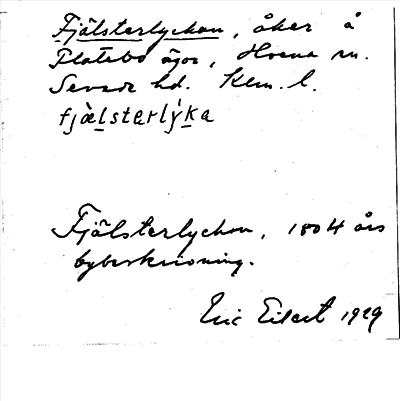 Fjälsterlyckan, åker å
Platebo ägor, Horna sn.
Sevede hd. Klm. l.
fjälsterlýka
Fjälsterlyckan, 1804 års
bybeskrivning.
Eric Eilert 1929